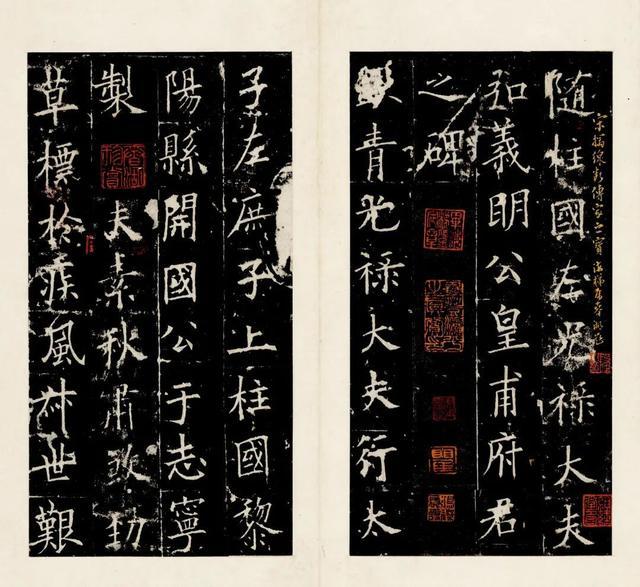 宋搨線斷傳家之寶
隨柱國左光祿大夫
弘義明公皇甫府君
之碑
銀青光祿大夫行太
子左庶子上柱國黎
陽縣開國公于志寧
製 夫素秋肅煞勁
草標於疾風叔世艱